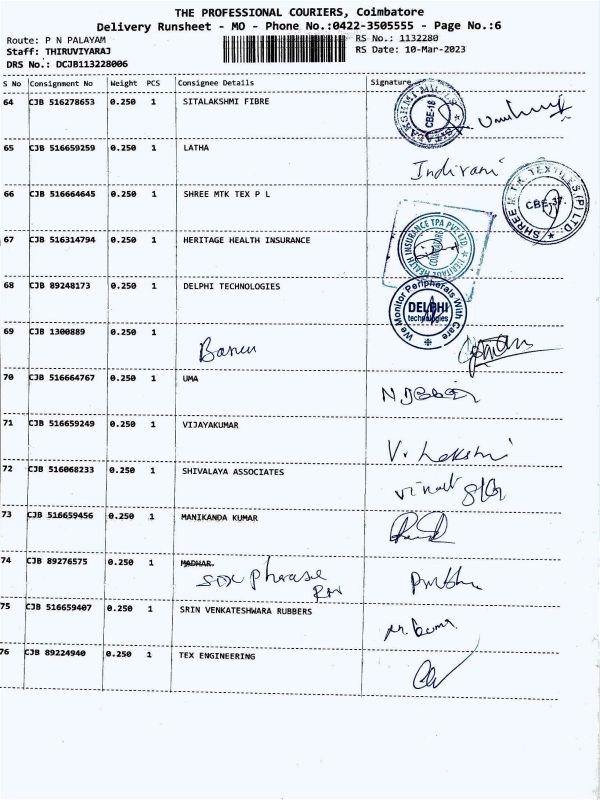 THE PROFESSIONAL COURIERS, Coimbatore
Delivery Runsheet - MO - Phone No.:0422-3505555 - Page No.:6
Route: P N PALAYAM RS No.: 1132280
Staff: THIRUVIYARAJ RS Date: 10-Mar-2023
DRS No.: DCJB113228006
S No Consignment No Weight PCS Consignee Details Signature
64 CJB 516278653 0.250 1 SITALAKSHMI FIBRE
CBE-18
65 CJB 516659259 0.250 1 LATHA
Indirani
66 CJB 516664645 0.250 1 SHREE MTK TEX P L
SHREE M.T.K. TEXTILES (P) LTD.
CBE-37.
67 CJB 516314794 0.250 1 HERITAGE HEALTH INSURANCE
HERITAGE HEALTH INSURANCE TPA PVT. LTD.
COIMBATORE
68 CJB 89248173 0.250 1 DELPHI TECHNOLOGIES
We Monitor Peripherals With Care
DELPHI
technologies
69 CJB 1300889 0.250 1
70 CJB 516664767 0.250 1 UMA
71 CJB 516659249 0.250 1 VIJAYAKUMAR
V. Lakshmi
72 CJB 516068233 0.250 1 SHIVALAYA ASSOCIATES
73 CJB 516659456 0.250 1 MANIKANDA KUMAR
74 CJB 89276575 0.250 1 MADHAR.
75 CJB 516659407 0.250 1 SRIN VENKATESHWARA RUBBERS
76 CJB 89224940 0.250 1 TEX ENGINEERING